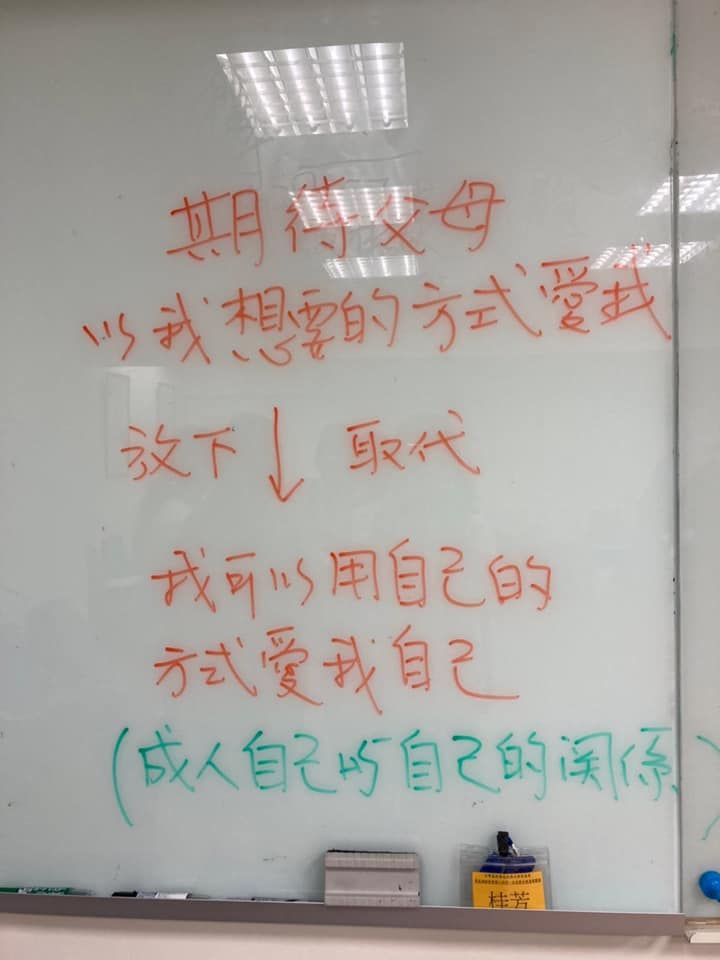 期待父母
以我想要的方式愛我
放下↓取代
我可以用自己的
方式愛我自己
(成人自己与自己的関係)
桂芳